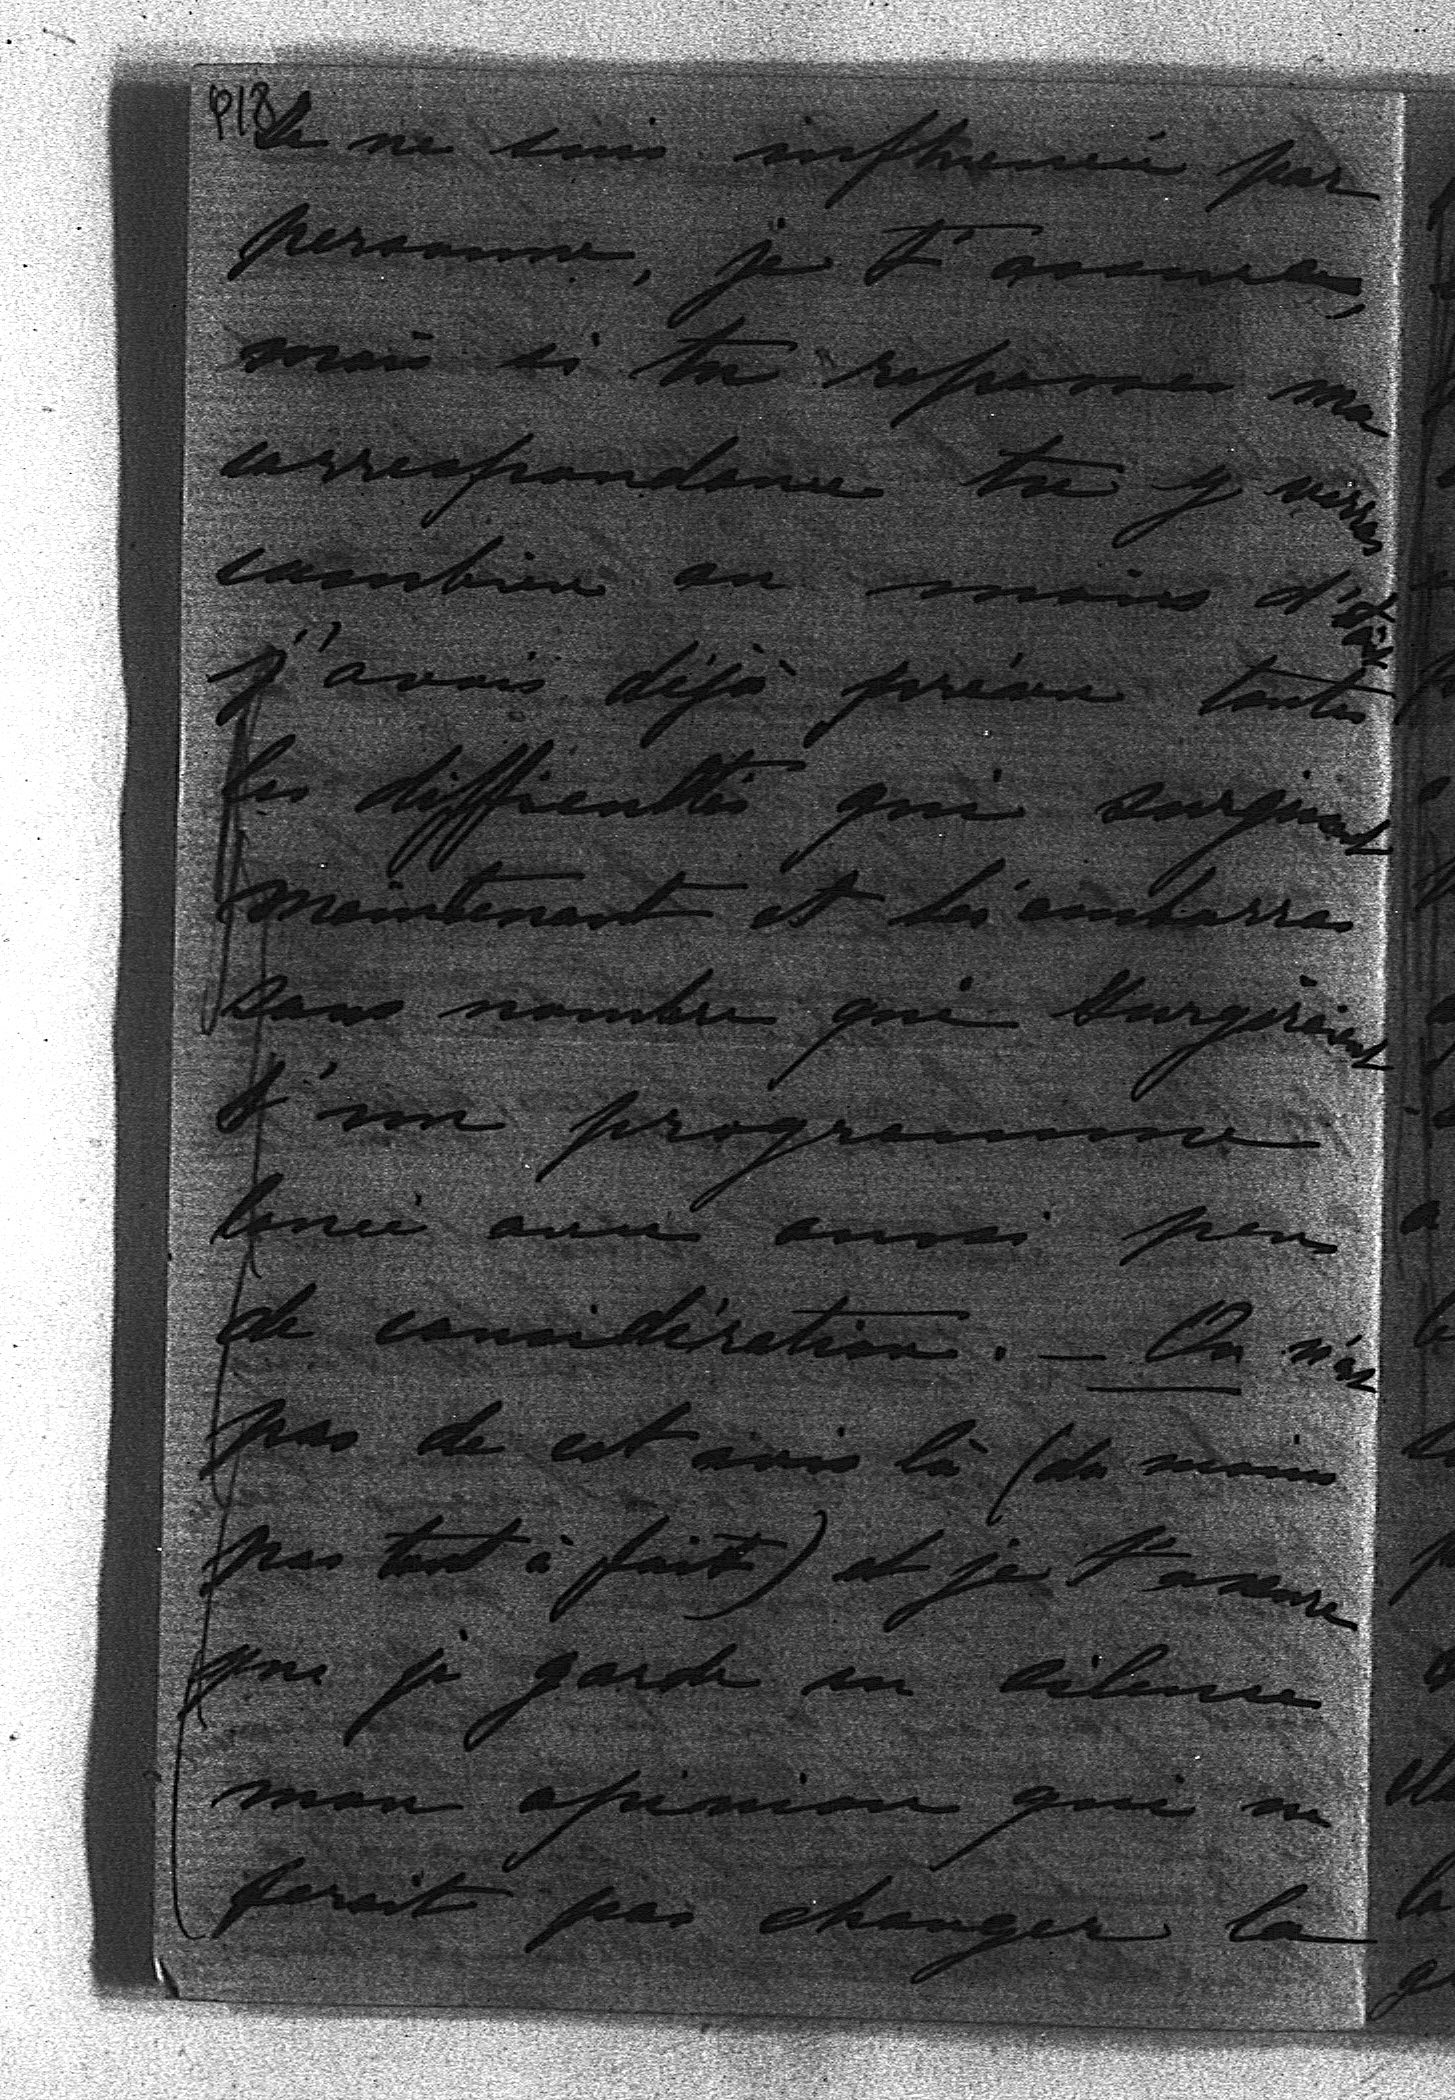 918
Je ne suis influencée par
personne, je t'assure,
mais si tu repasses ma
correspondance tu y verras
combien au mois d'Août
j'avais déjà prévu toutes
les difficultés qui surgissent
maintenant et les embarras
sans nombre qui surgiraient
d'un programme
lancé avec aussi peu
de considération. — On n'est
pas de cet avis là (du moins
pas tout à fait) et je t'assure
que je garde en silence
mon opinion qui ne
ferait pas changer la